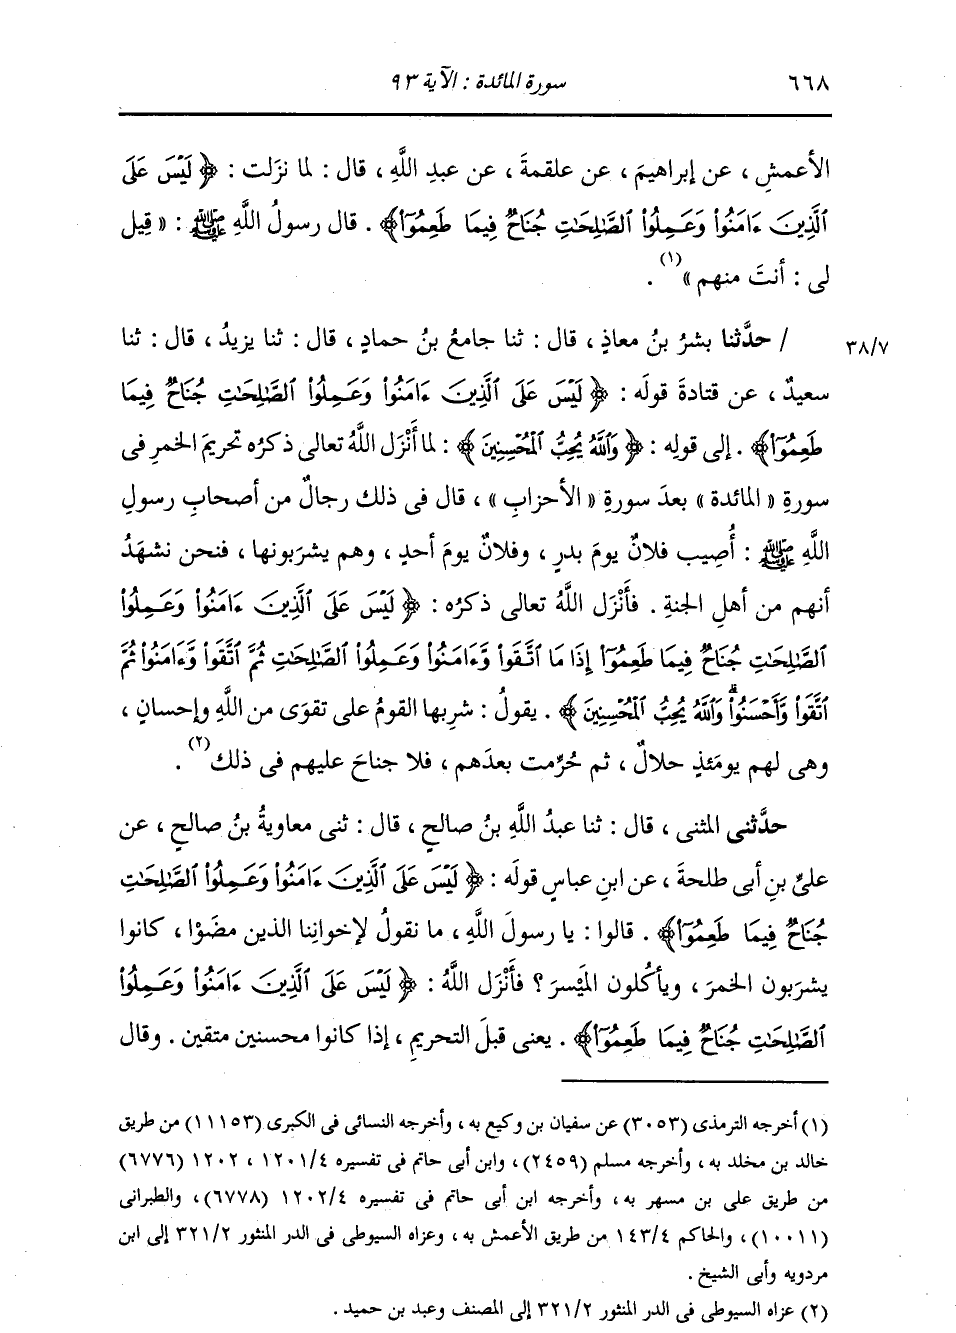 ٦٦٨ سورة المائدة : الآية ٩٣
الأعمشِ ، عن إبراهيمَ ، عن علقمةَ ، عن عبدِ اللَّهِ ، قال : لما نزَلت : ﴿ لَيْسَ عَلَى
ٱلَّذِينَ ءَامَنُوا۟ وَعَمِلُوا۟ ٱلصَّٰلِحَٰتِ جُنَاحٌ فِيمَا طَعِمُوٓا۟ ﴾ . قال رسولُ اللَّهِ ﷺ : « قِيل
لى : أنتَ منهم »(١) .
/ حدَّثنا بشرُ بنُ معاذٍ ، قال : ثنا جامعُ بنُ حمادٍ ، قال : ثنا يزيدُ ، قال : ثنا
٣٨/٧
سعيدٌ ، عن قتادةَ قولَه : ﴿ لَيْسَ عَلَى ٱلَّذِينَ ءَامَنُوا۟ وَعَمِلُوا۟ ٱلصَّٰلِحَٰتِ جُنَاحٌ فِيمَا
طَعِمُوٓا۟ ﴾ . إلى قولِه : ﴿ وَٱللَّهُ يُحِبُّ ٱلْمُحْسِنِينَ ﴾ : لما أَنْزَل اللَّهُ تعالى ذكرُه تحريمَ الخمرِ فى
سورةِ « المائدة » بعدَ سورةِ « الأحزابِ » ، قال فى ذلك رجالٌ من أصحابِ رسولِ
اللَّهِ ﷺ : أُصِيب فلانٌ يومَ بدرٍ ، وفلانٌ يومَ أحدٍ ، وهم يشرَبونها ، فنحن نشهَدُ
أنهم من أهلِ الجنةِ . فأَنْزَل اللَّهُ تعالى ذكرُه : ﴿ لَيْسَ عَلَى ٱلَّذِينَ ءَامَنُوا۟ وَعَمِلُوا۟
ٱلصَّٰلِحَٰتِ جُنَاحٌ فِيمَا طَعِمُوٓا۟ إِذَا مَا ٱتَّقَوا۟ وَّءَامَنُوا۟ وَعَمِلُوا۟ ٱلصَّٰلِحَٰتِ ثُمَّ ٱتَّقَوا۟ وَّءَامَنُوا۟ ثُمَّ
ٱتَّقَوا۟ وَّأَحْسَنُوا۟ ۗ وَٱللَّهُ يُحِبُّ ٱلْمُحْسِنِينَ ﴾ . يقولُ : شرِبها القومُ على تقوَى من اللَّهِ وإحسانٍ ،
وهى لهم يومَئذٍ حلالٌ ، ثم حُرِّمت بعدَهم ، فلا جناحَ عليهم فى ذلك(٢) .
حدَّثنى المثنى ، قال : ثنا عبدُ اللَّهِ بنُ صالحٍ ، قال : ثنى معاويةُ بنُ صالحٍ ، عن
علىِّ بنِ أبى طلحةَ ، عن ابنِ عباسٍ قولَه : ﴿ لَيْسَ عَلَى ٱلَّذِينَ ءَامَنُوا۟ وَعَمِلُوا۟ ٱلصَّٰلِحَٰتِ
جُنَاحٌ فِيمَا طَعِمُوٓا۟ ﴾ . قالوا : يا رسولَ اللَّهِ ، ما نقولُ لإخوانِنا الذين مضَوْا ، كانوا
يشرَبون الخمرَ ، ويأكُلون المَيْسرَ ؟ فأَنْزَل اللَّهُ : ﴿ لَيْسَ عَلَى ٱلَّذِينَ ءَامَنُوا۟ وَعَمِلُوا۟
ٱلصَّٰلِحَٰتِ جُنَاحٌ فِيمَا طَعِمُوٓا۟ ﴾ . يعنى قبلَ التحريمِ ، إذا كانوا محسنين متقين . وقال
(١) أخرجه الترمذى (٣٠٥٣) عن سفيان بن وكيع به ، وأخرجه النسائى فى الكبرى (١١١٥٣) من طريق
خالد بن مخلد به ، وأخرجه مسلم (٢٤٥٩) ، وابن أبى حاتم فى تفسيره ١٢٠١/٤ ، ١٢٠٢ (٦٧٧٦)
من طريق على بن مسهر به ، وأخرجه ابن أبى حاتم فى تفسيره ١٢٠٢/٤ (٦٧٧٨) ، والطبرانى
(١٠٠١١) ، والحاكم ١٤٣/٤ من طريق الأعمش به ، وعزاه السيوطى فى الدر المنثور ٣٢١/٢ إلى ابن
مردويه وأبى الشيخ .
(٢) عزاه السيوطى فى الدر المنثور ٣٢١/٢ إلى المصنف وعبد بن حميد .